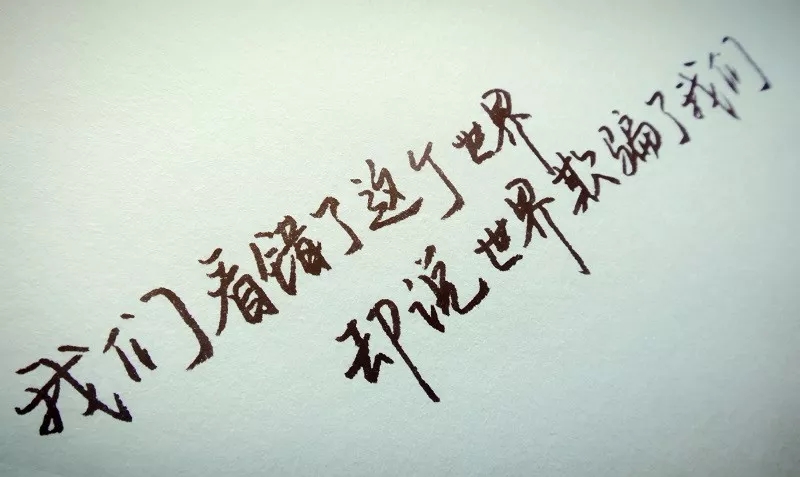 我们看错了这个世界
却说世界欺骗了我们